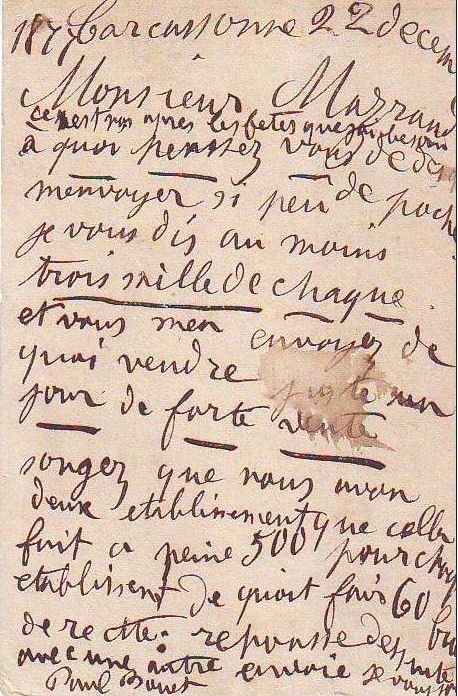 Carcassonne 22 decem
Monsieur Mazzand
ce nest pas apres les fetes que
à quoi pensez vous de de
menvoyer si peu de poche
je vous dis au moins
trois mille de chaque
et vous men envoyez de
quoi vendre juste un
jour de forte vente
songez que nous avon
deux etablissement que cella
fait a peine 500 pour chaq
etablissent de quoit fair 60
de recette. reponse de suite
avec une autre envoie
Paul Bonet